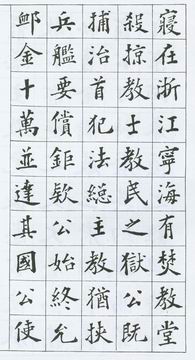 寢在浙江寧海有焚教堂
殺掠教士教民之獄公既
捕治首犯法總主教猶挾
兵艦要償鉅欵公始終允
卹金十萬並達其國公使